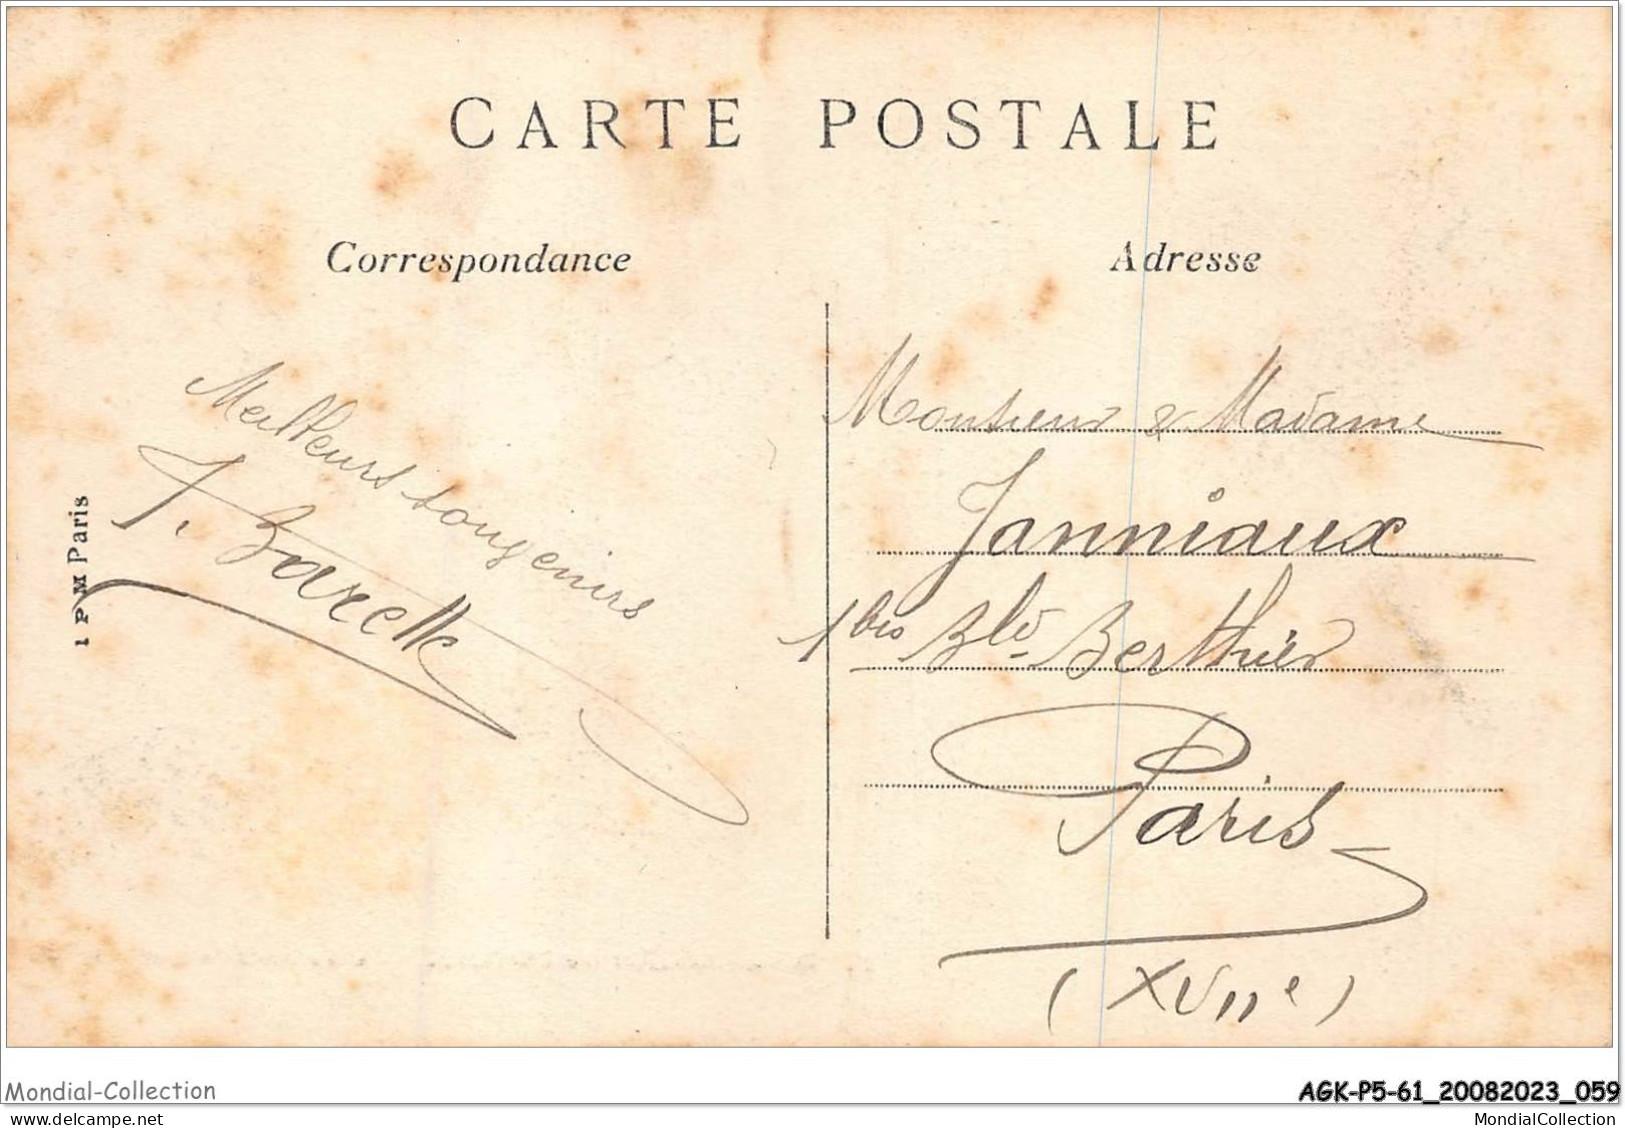 CARTE POSTALE
Correspondance
Adresse
Meilleurs souvenirs
J. Barelle
1 P M Paris
Monsieur & Madame
Janniaux
1bis Blv Berthier
Paris
(XVIIe)
Mondial-Collection
AGK-P5-61_20082023_059
MondialCollection